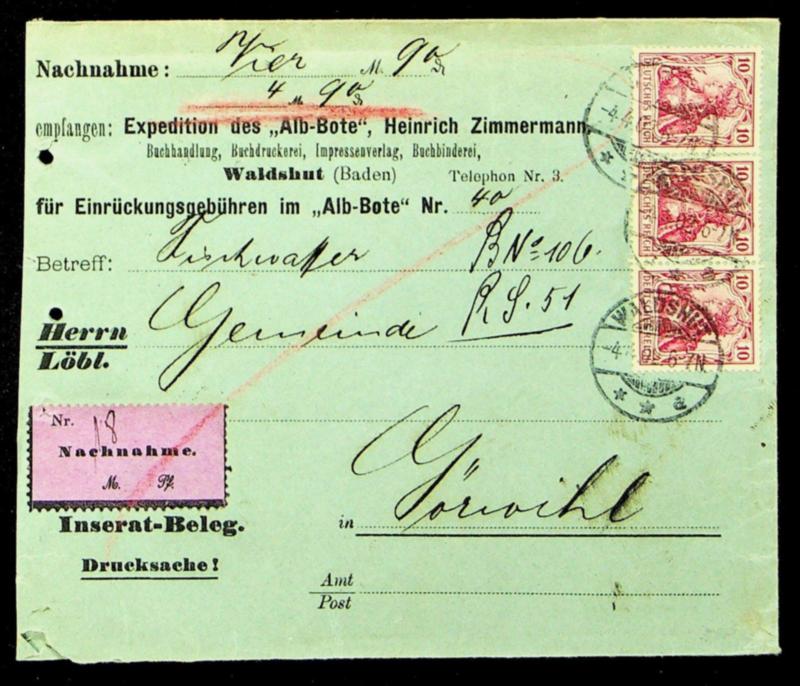 Nachnahme: Vier M. 90 Pf
4 M 90 Pf
empfangen: Expedition des „Alb-Bote“, Heinrich Zimmermann,
Buchhandlung, Buchdruckerei, Impressenverlag, Buchbinderei,
Waldshut (Baden) Telephon Nr. 3.
für Einrückungsgebühren im „Alb-Bote“ Nr. 40
Betreff: Fischwasser B No 106.
R S. 51
Herrn
Löbl. Gemeinde
Nr. 18
Nachnahme.
M. Pf.
Inserat-Beleg.
in Görwihl
Drucksache!
Amt
Post
10
DEUTSCHES REICH
10
10
DEUTSCHES REICH
10
10
10
WALDSHUT
6-7N.
a